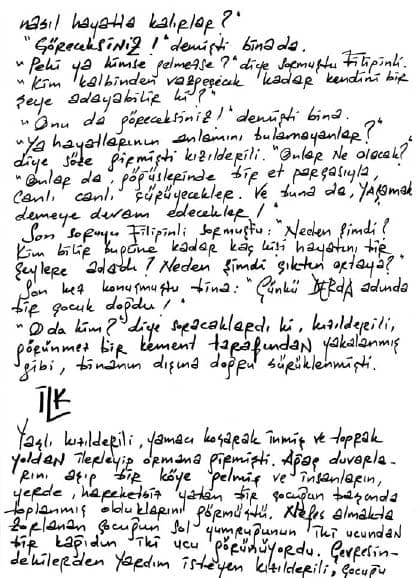 nasıl hayatta kalırlar?"
"Göreceksiniz!" demişti binada.
"Peki ya kimse gelmezse?" diye sormuştu Filipinli.
"Kim kalbinden vazgeçecek kadar kendini bir
şeye adayabilir ki?"
"Onu da göreceksiniz!" demişti bina.
"Ya hayatlarının anlamını bulamayanlar?"
diye söze girmişti kızılderili. "Onlar ne olacak?"
"Onlar da göğüslerinde bir et parçasıyla,
canlı canlı çürüyecekler. Ve buna da, YAŞAMAK
demeye devam edecekler!"
Son soruyu Filipinli sormuştu: "Neden şimdi?
Kim bilir bugüne kadar kaç kişi hayatını bir
şeylere adadı? Neden şimdi çıktın ortaya?"
Son kez konuşmuştu bina: "Çünkü DERDA adında
bir çocuk doğdu!"
"O da kim?" diye soracaklardı ki, kızılderili,
görünmez bir kement tarafından yakalanmış
gibi, binanın dışına doğru sürüklenmişti.
İLK
Yaşlı kızılderili, yamacı koşarak inmiş ve toprak
yoldan ilerleyip ormana girmişti. Ağaç duvarla-
rını aşıp bir köye gelmiş ve insanların,
yerde, hareketsiz yatan bir çocuğun başında
toplanmış olduklarını görmüştü. Nefes almakta
zorlanan çocuğun sol yumruğunun iki ucundan
bir kağıdın iki ucu görünüyordu. Çevresin-
dekilerden yardım isteyen kızılderili, çocuğu